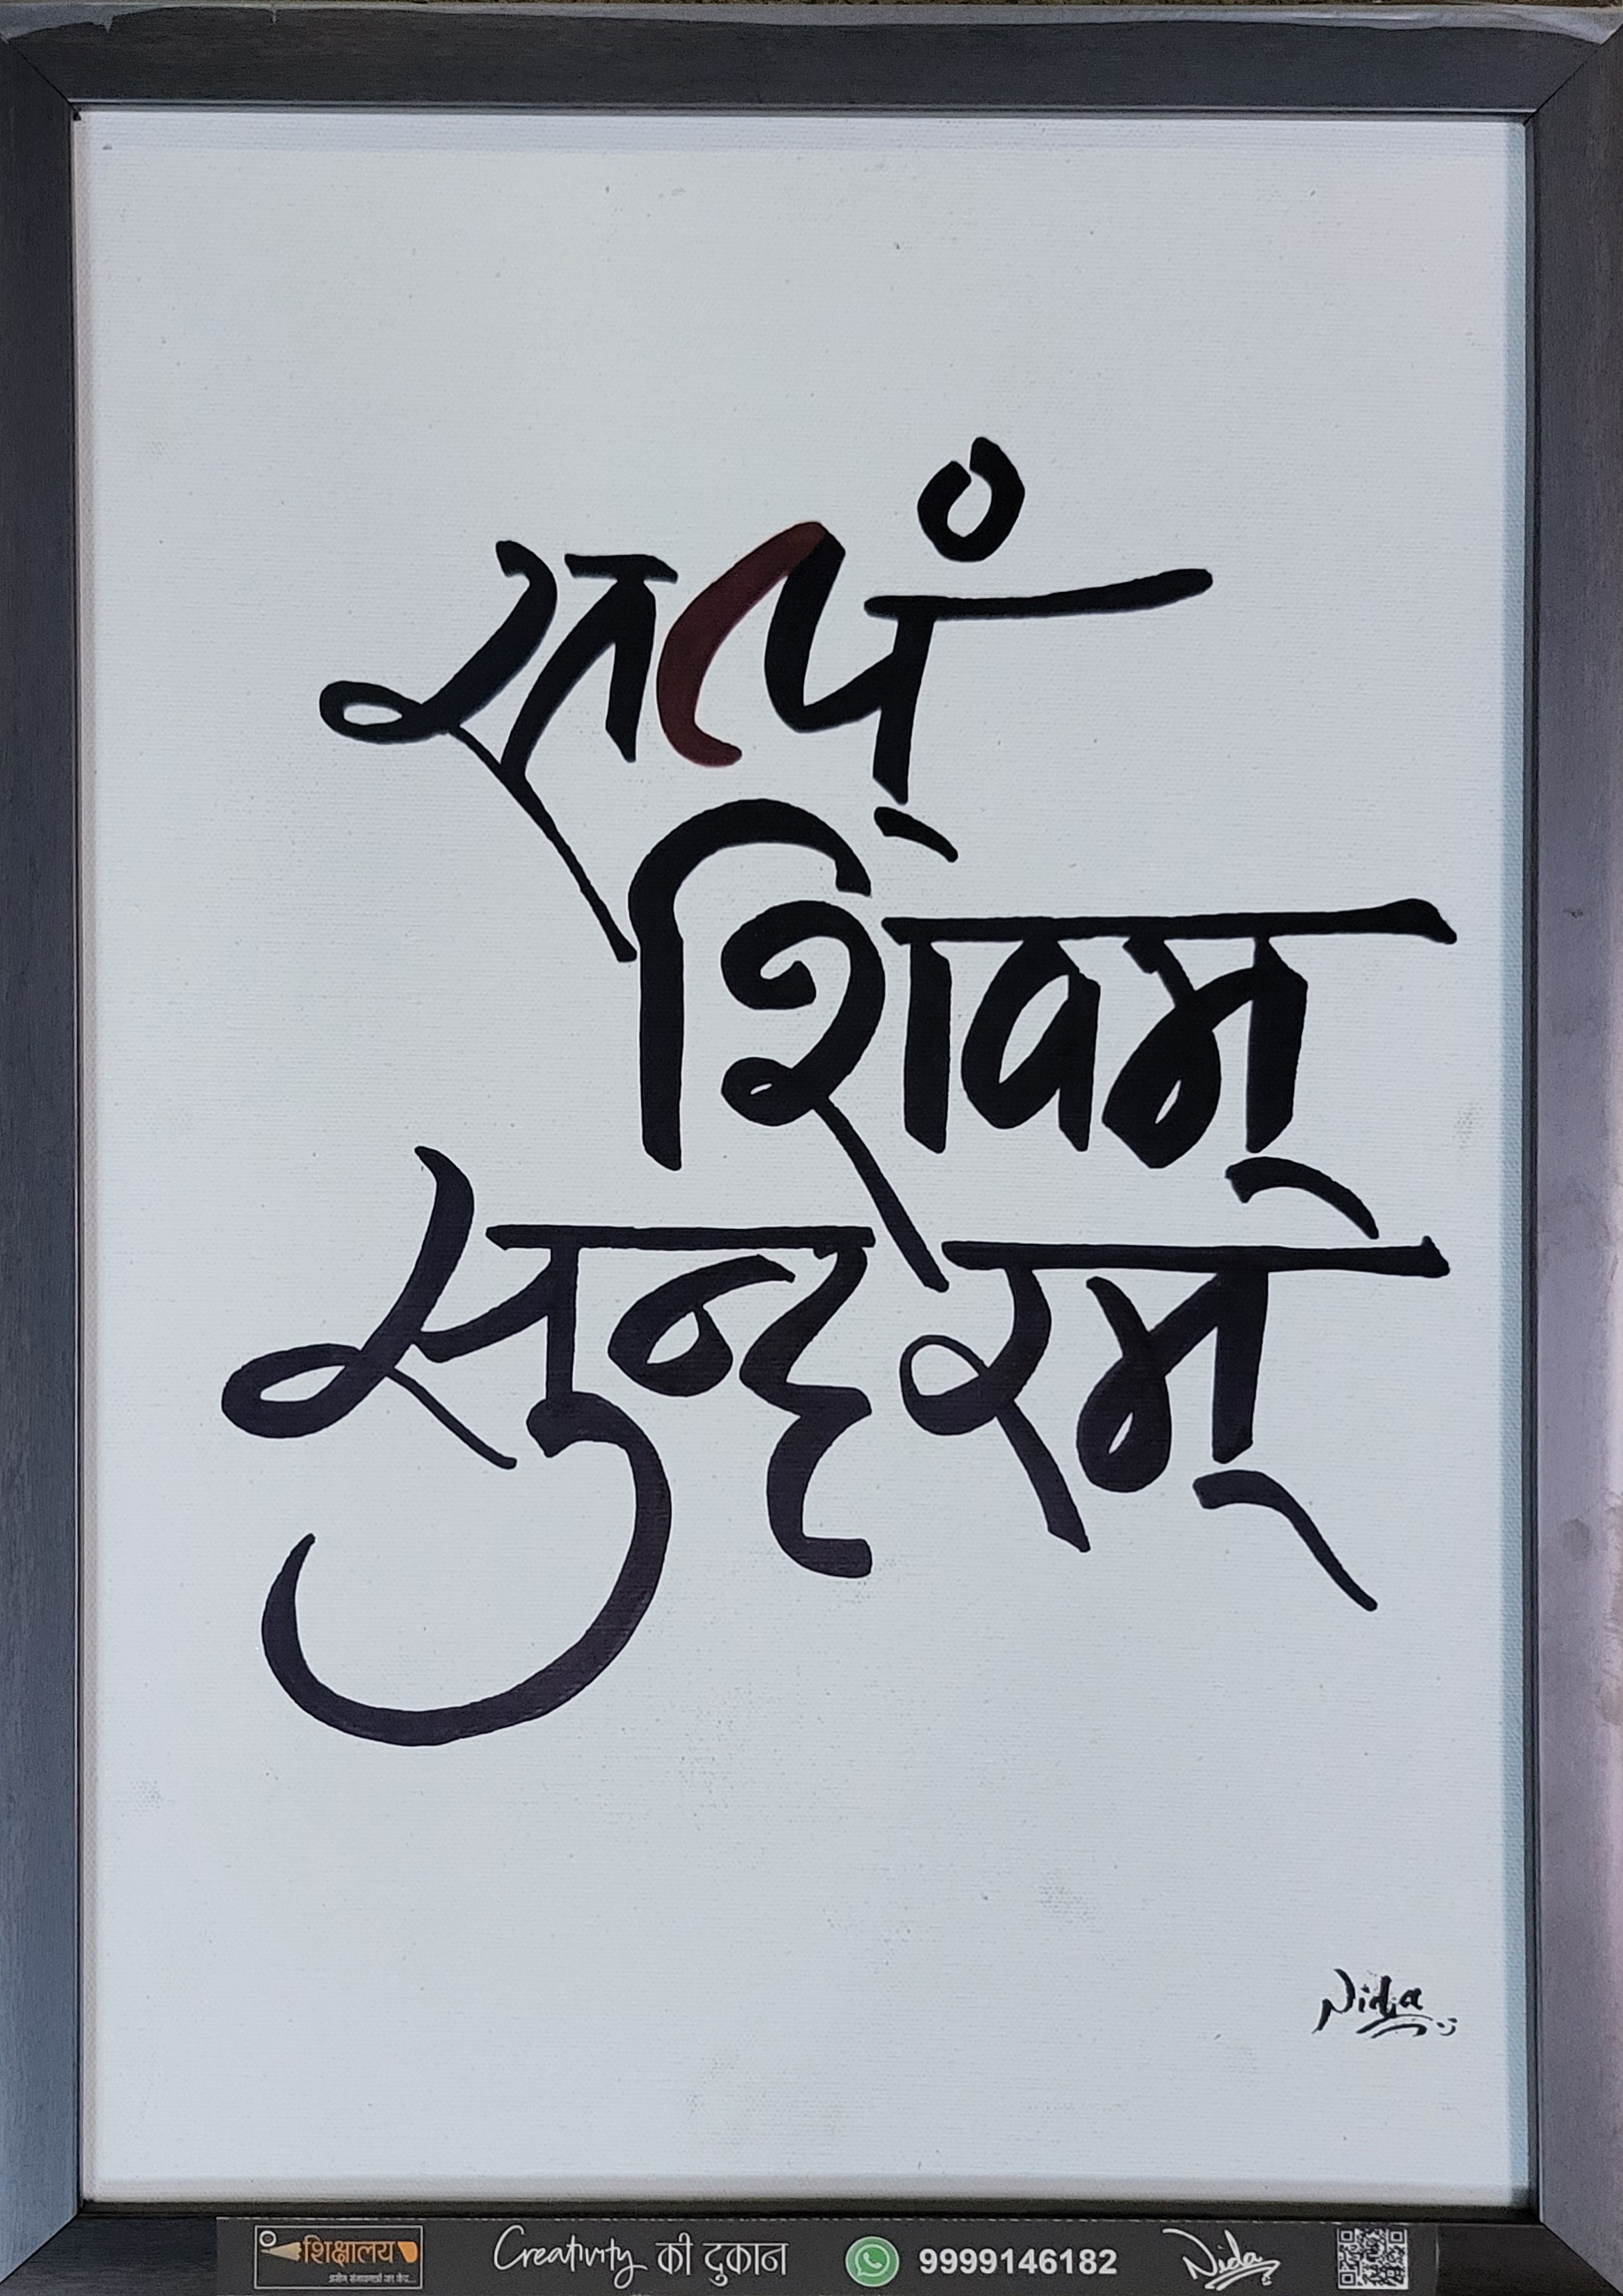 सत्यं
शिवम्
सुन्दरम्
Nida
शिक्षालय
Creativity की दुकान
9999146182
Nida